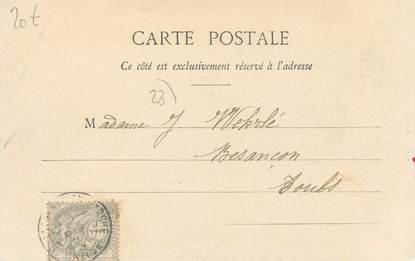 20t
CARTE POSTALE
Ce côté est exclusivement réservé à l'adresse
23)
Madame J Wehrlé
Besançon
Doubs